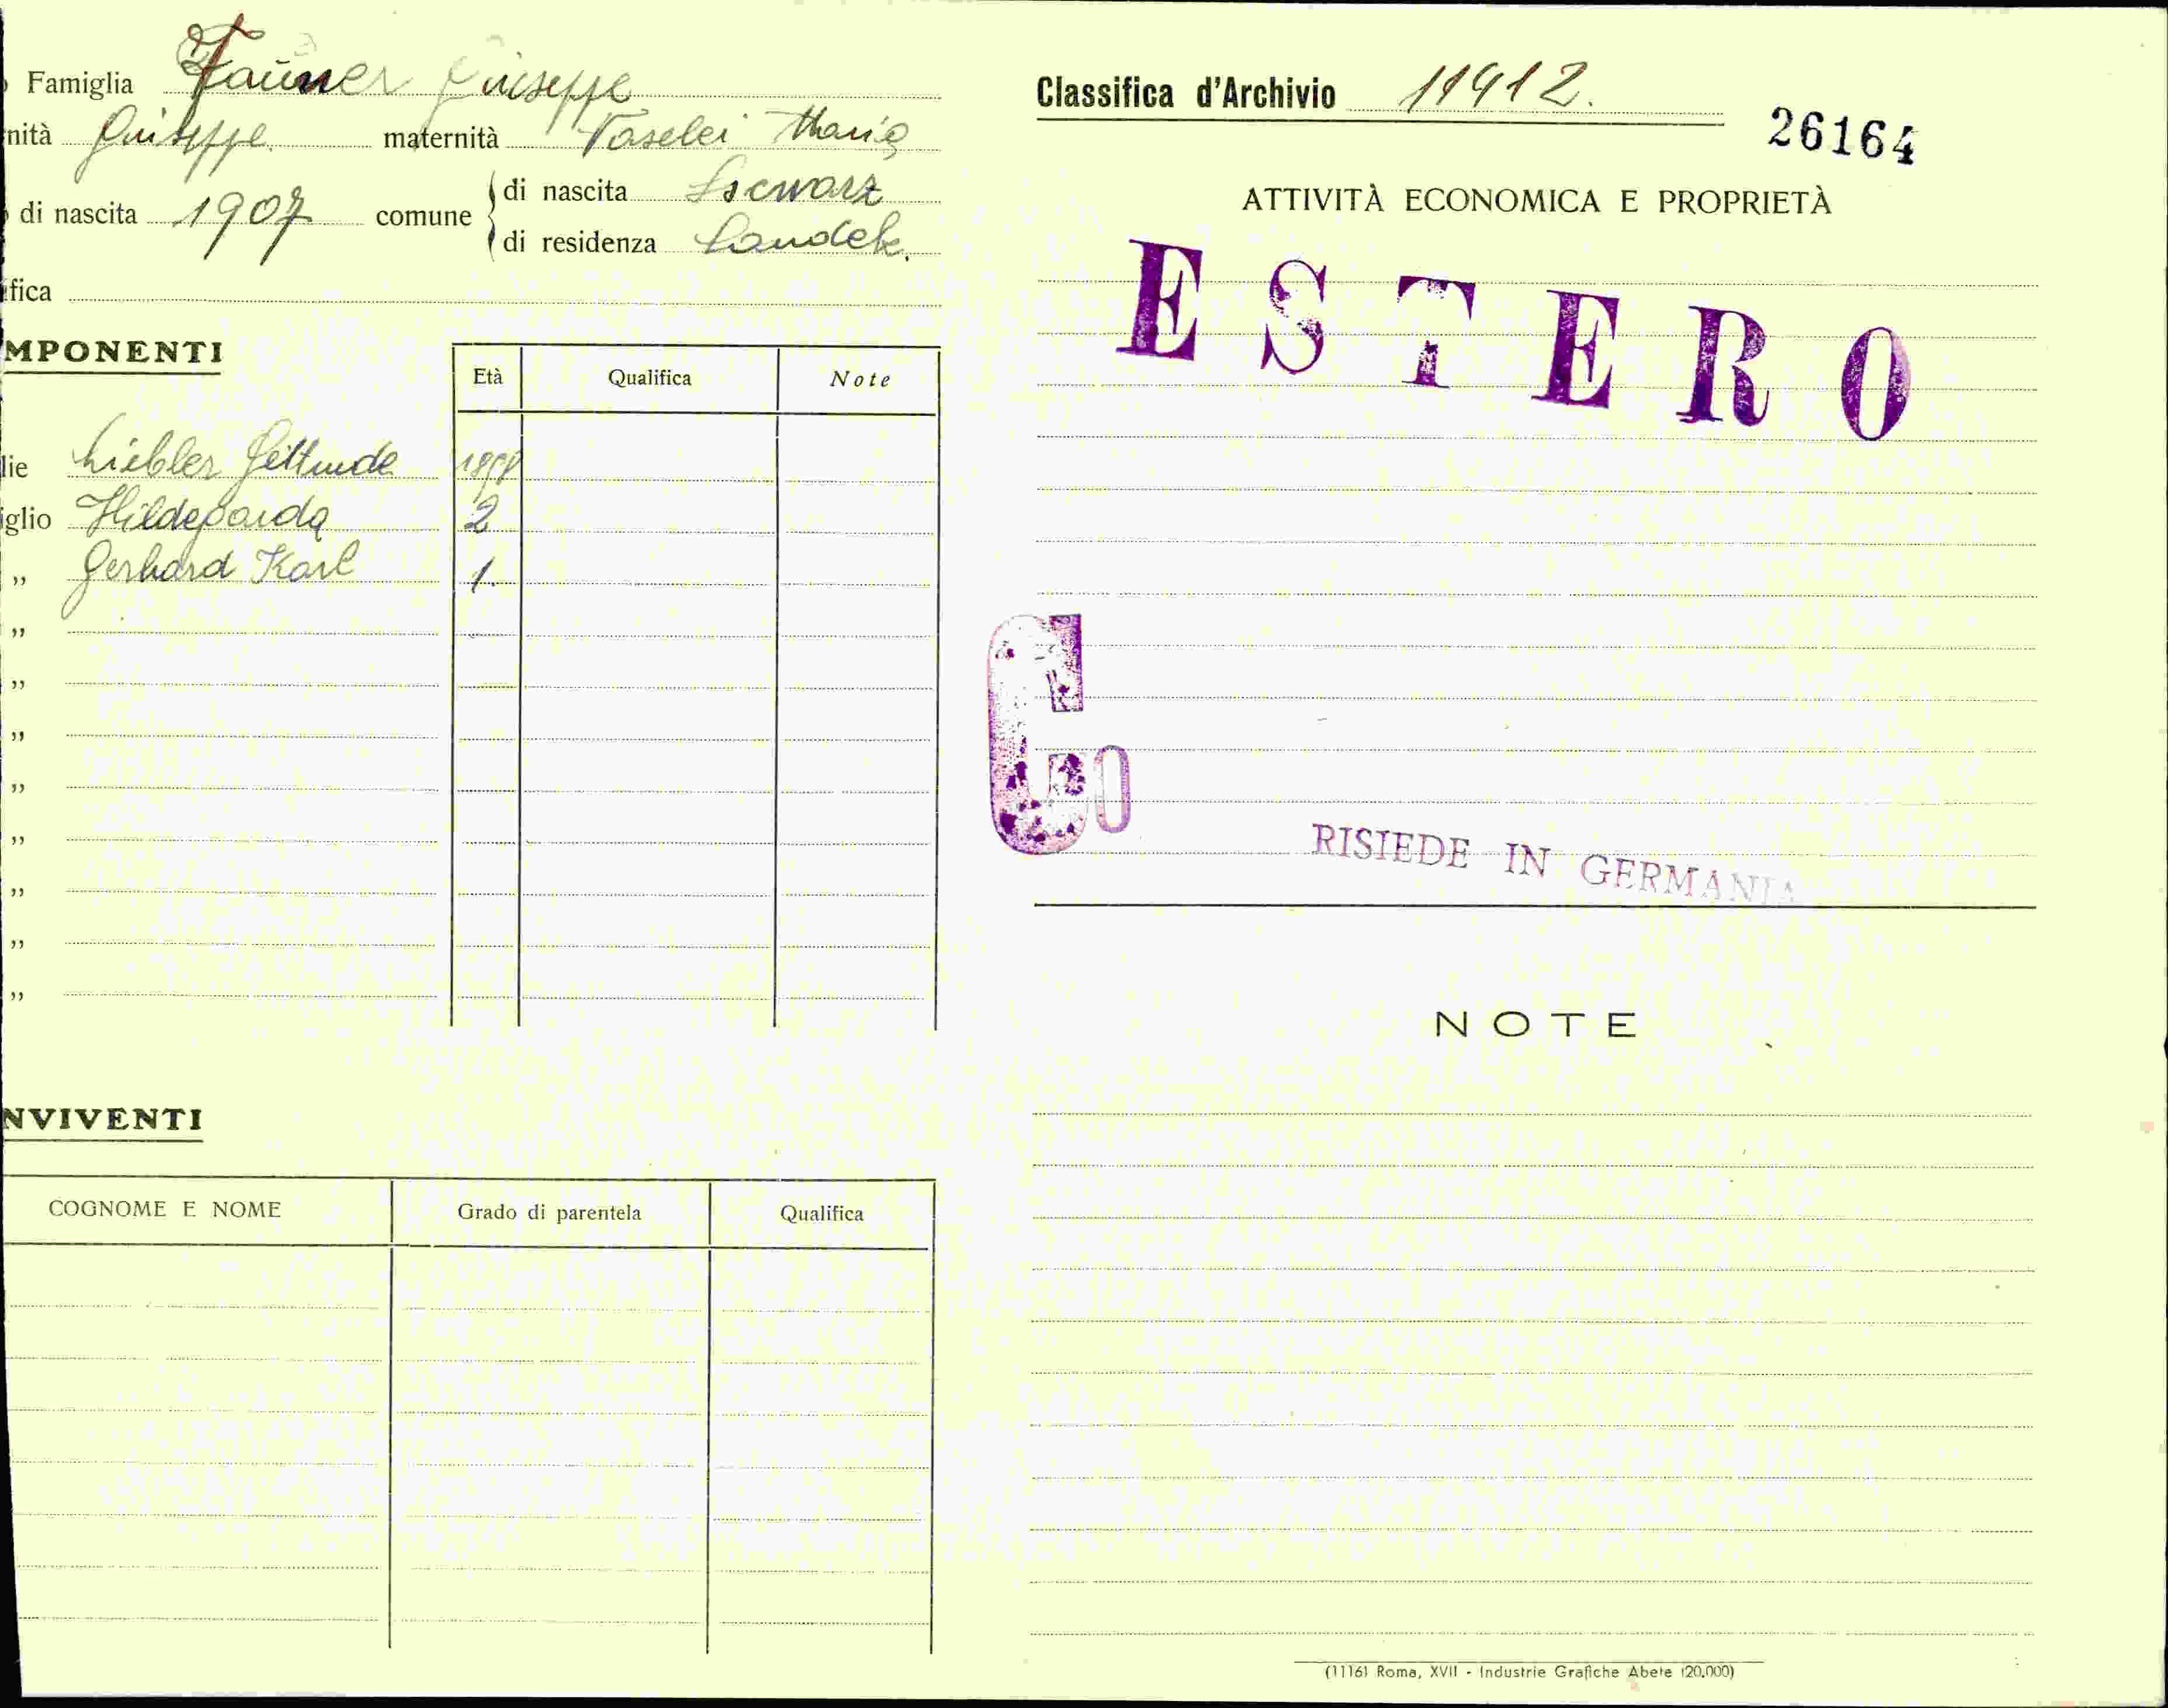 Famiglia Fauner Giuseppe
nità Giuseppe maternità Vaselei Maria
di nascita 1907 comune di nascita Scwarz
di residenza Landek.
fica
MPONENTI
Età Qualifica Note
lie Liebler Geltrude
iglio Hildegarda 2
„ Gerhard Karl 1.
„
„
„
„
„
„
„
„
NVIVENTI
COGNOME E NOME Grado di parentela Qualifica
Classifica d'Archivio 11912.
26164
ATTIVITÀ ECONOMICA E PROPRIETÀ
ESTERO
G
RISIEDE IN GERMANIA
NOTE
(11161 Roma, XVII - Industrie Grafiche Abete (20.000)